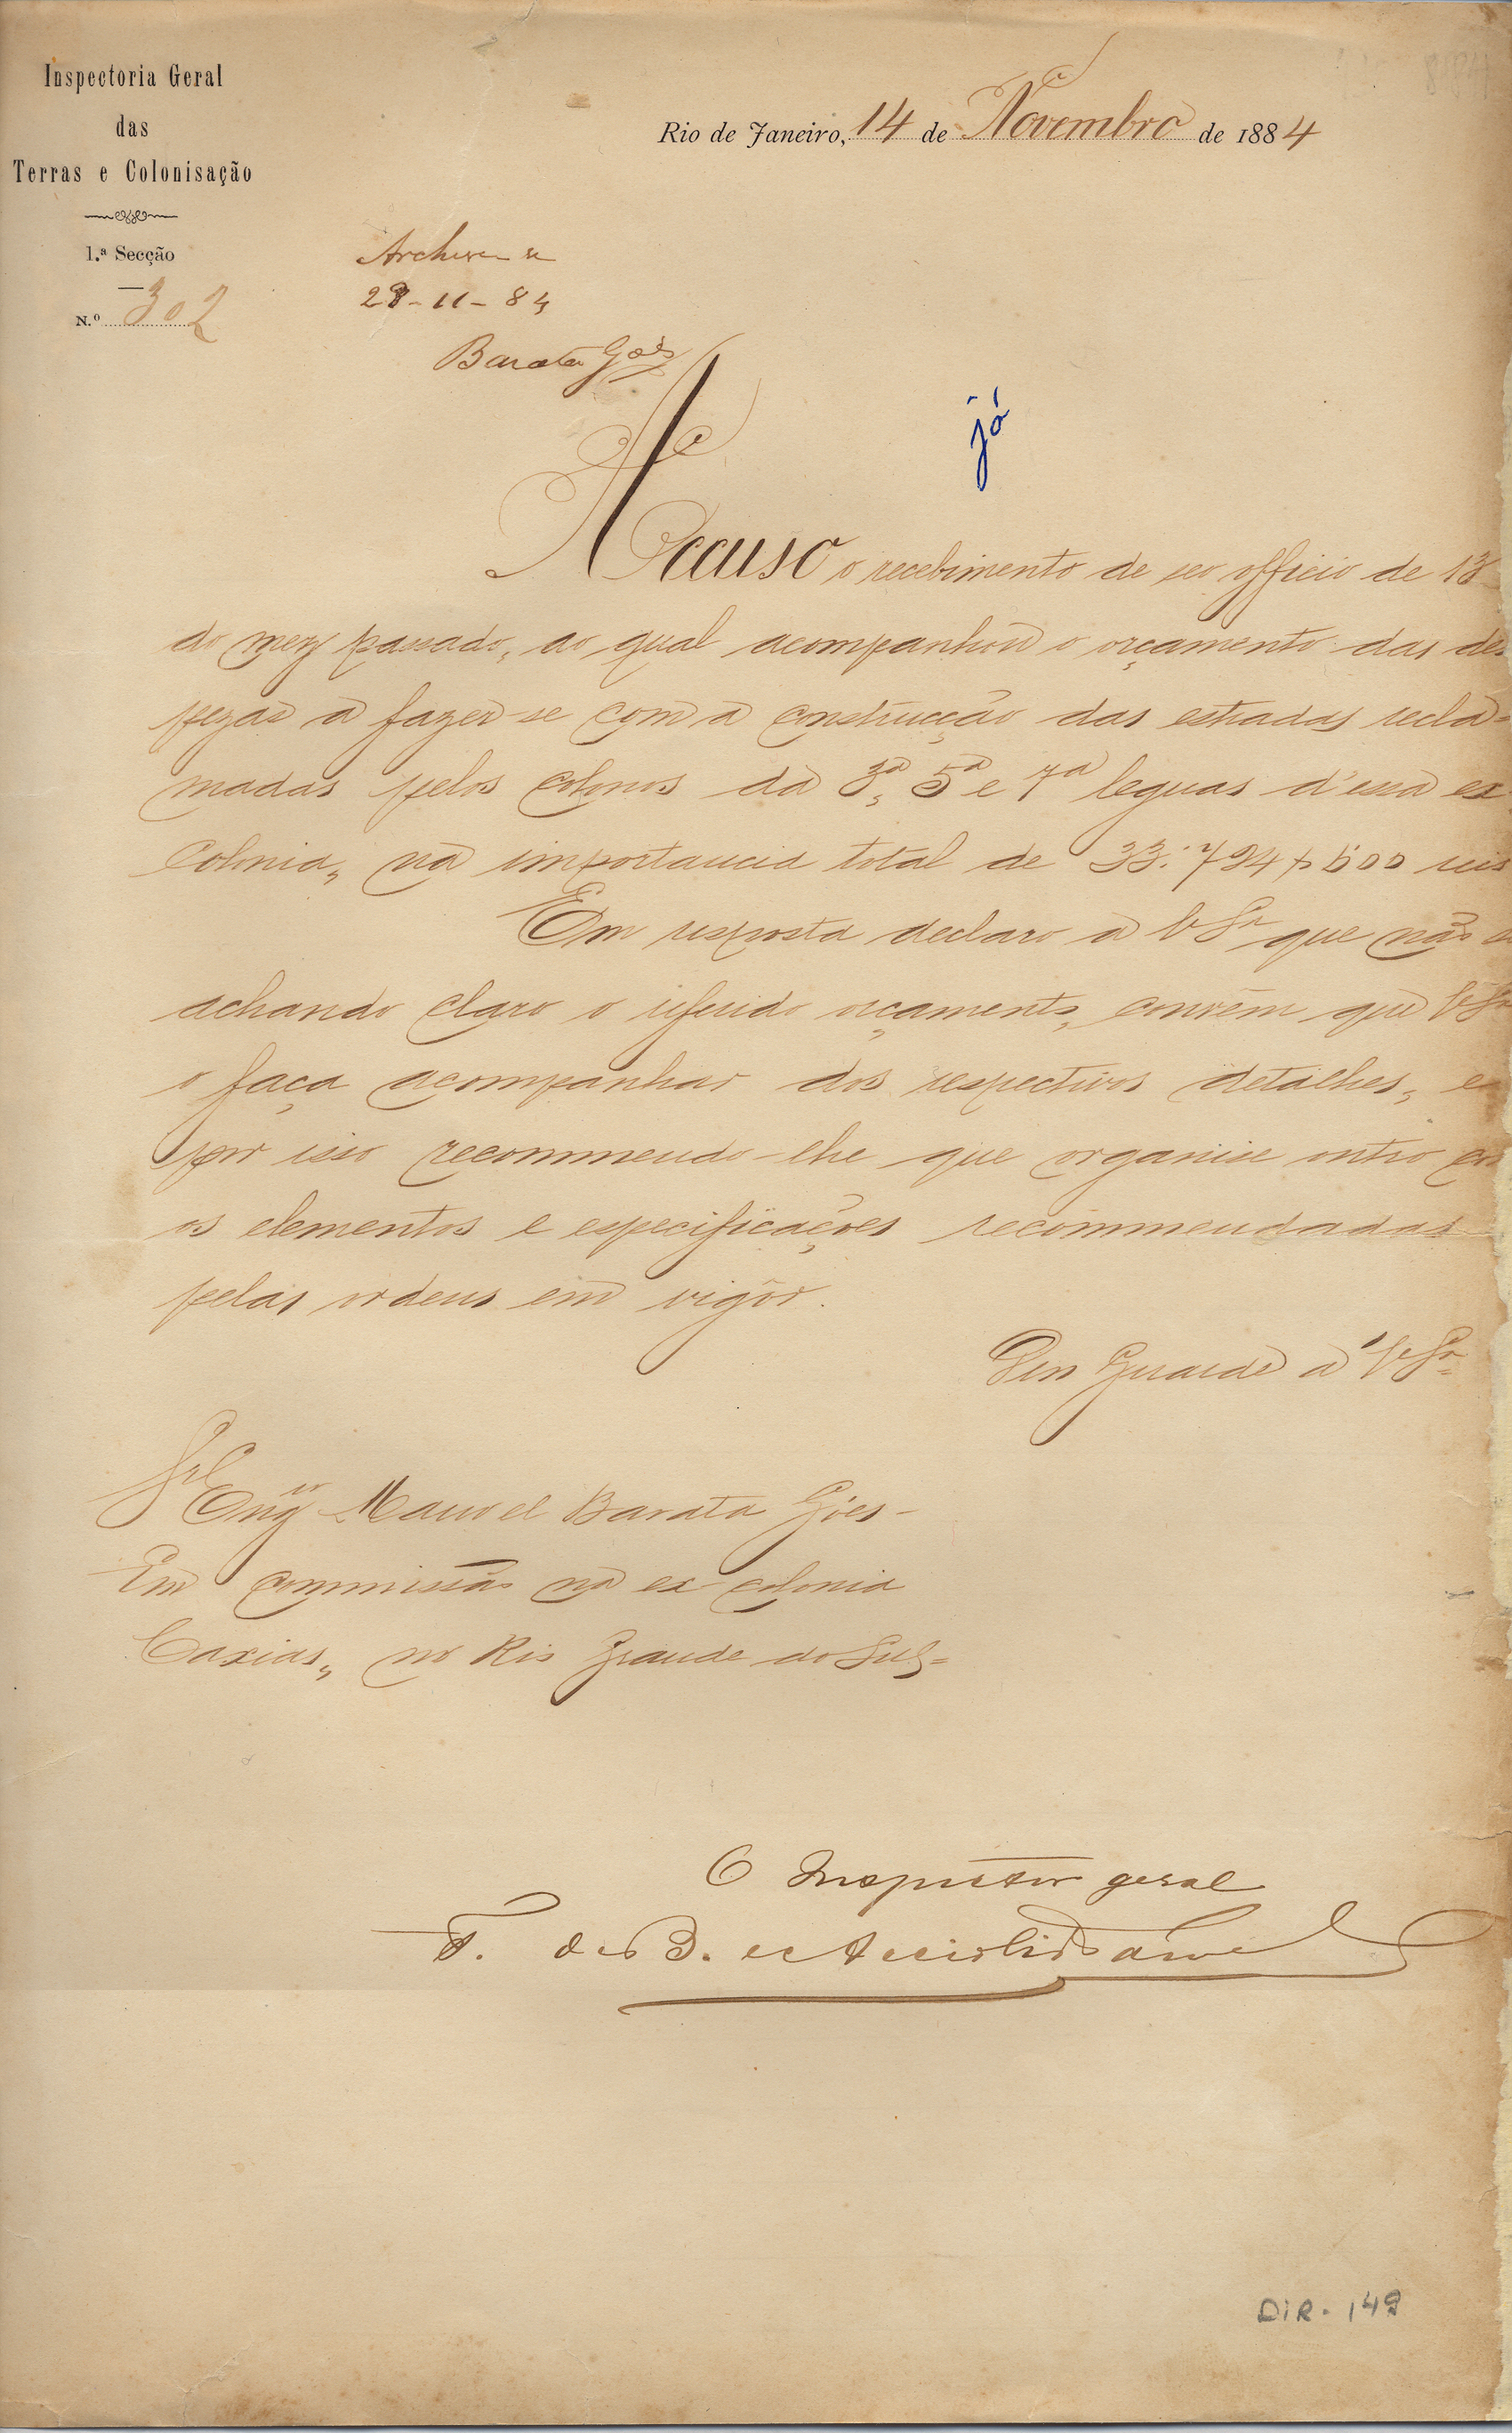 Inspectoria Geral
das
Terras e Colonisação
1.ª Secção
N.º 302
Rio de Janeiro, 14 de Novembro de 1884
Archive-se
28-11-84
Barata Góes
já
Accuso o recebimento de seo officio de 13
do mez passado, ao qual acompanhou o orçamento das des
pezas a fazer-se com a construcção das estradas recla-
madas pelos colonos da 3ª, 5ª e 7ª leguas d'essa ex
Colonia, na importancia total de 33:794$500 reis
Em resposta declaro a VSª que não
achando claro o referido orçamento, convém que VSª
o faça acompanhar dos respectivos detalhes, e
por isso recommendo-lhe que organise outro
os elementos e especificações recommendadas
pelas ordens em vigôr.
Deos Guarde a VSª
Sr. Engro Manoel Barata Góes-
Em commissão na ex colonia
Caxias, no Rio Grande do Sul=
O Inspector geral
F. de B. e Accioli de
DIR. 149